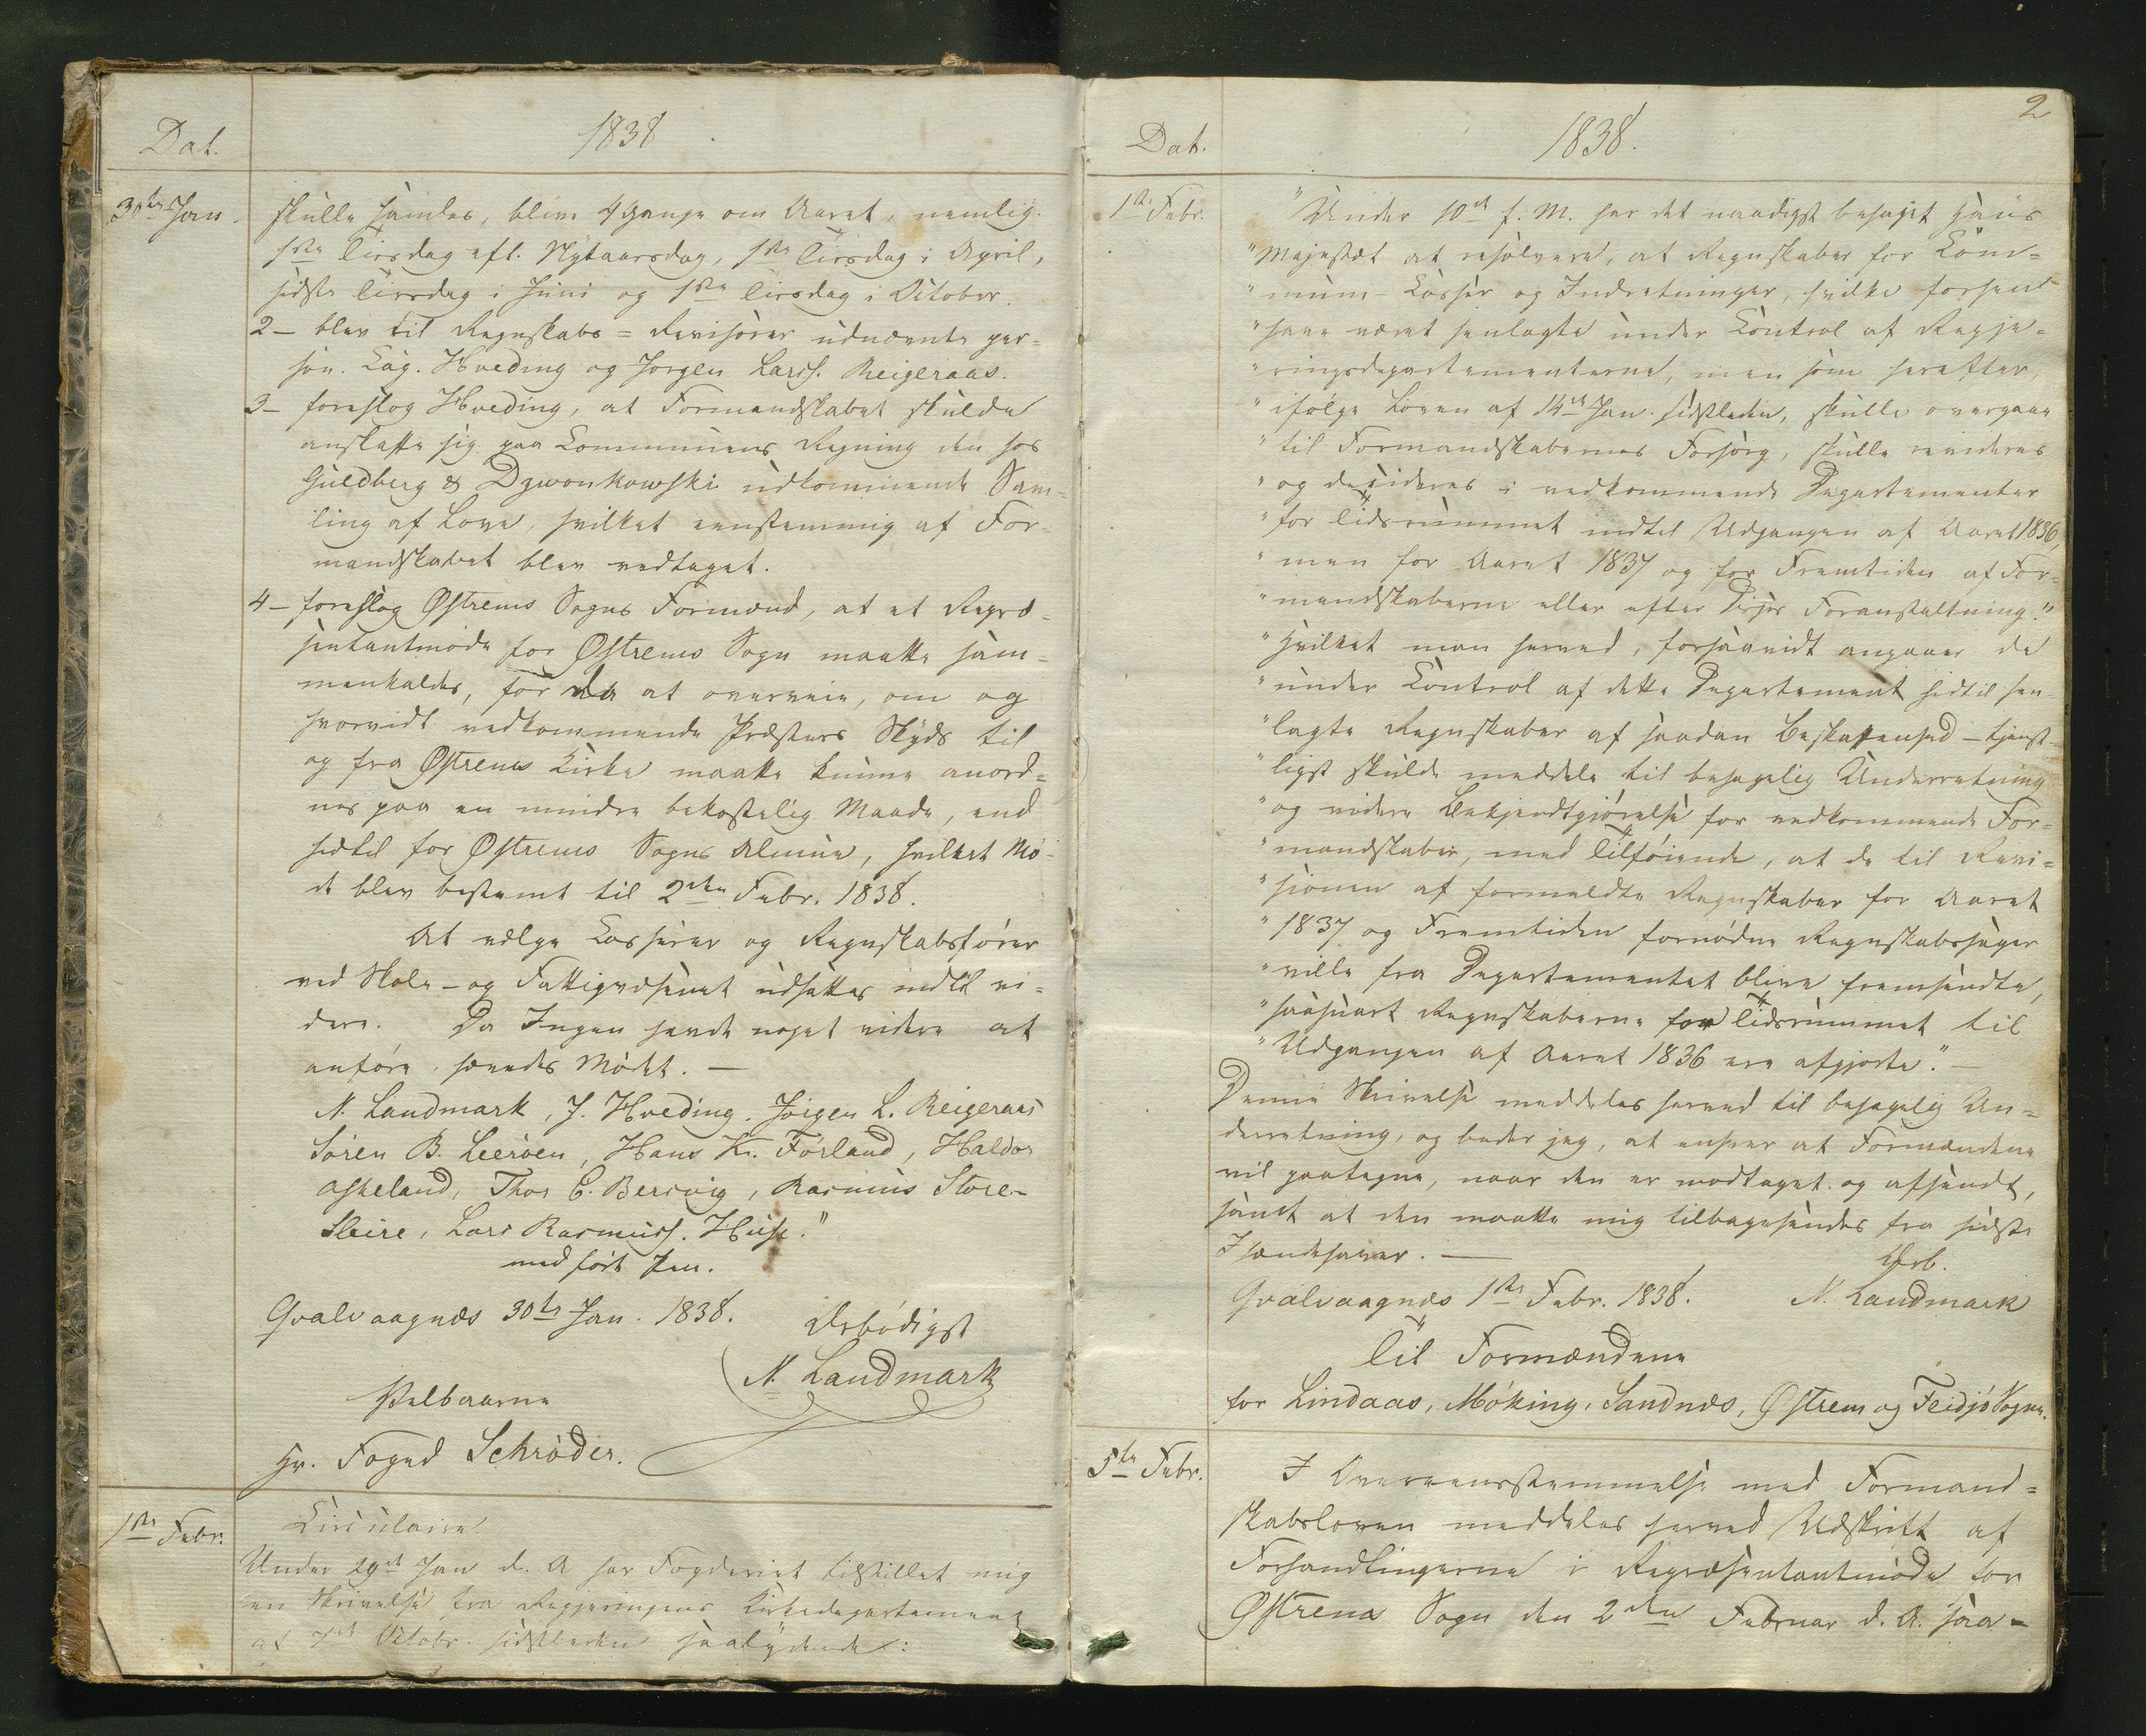 Dat.
1838
30te Jan.
skulle samles, blive 4 Gange om Aaret, nemlig
1ste Tirsdag eft. Nytaarsdag, 1ste Tirsdag i April,
sidste Tirsdag i Juni og 1ste Tirsdag i October.
2- blev til Regnskabs=Revisorer udnævnte per=
son. Cap. Hveding og Jørgen Larss. Reigeraas.
3- foreslog Hveding, at Formandskabet skulde
anskaffe sig paa Communens Regning den hos
Guldberg & Dzwonkowski udkommende Sam=
ling af Love, hvilket eenstemmig af For=
mandskabet blev vedtaget.
4- foreslog Østrems Sogns Formænd, at et Repræ=
sentantmøde for Østrems Sogn maatte sam=
menkaldes, for da at overveie, om og
hvorvidt vedkommende Præsters Skyds til
og fra Østrems Kirke maatte kunne anord=
nes paa en mindre bekostelig Maade, end
hidtil for Østrems Sogns Almue, hvilket Mø=
de blev bestemt til 2den Febr. 1838.
At vælge Casserer og Regnskabsfører
ved Skole- og Fattigvæsenet udsættes indtil vi=
dere. Da Ingen havde noget videre at
anføre, hævedes Mødet. —
N. Landmark, J. Hveding, Jørgen L. Reigeraas
Søren B. Leeröen, Hans Kr. Førland, Haldor
Askeland, Thor C. Bersvig, Rasmus Store-
Sleire, Lars Rasmuss. Huse."
medført Pen.
Qvalvaagnæs 30te Jan. 1838.
Ærbødigst
N. Landmark
Velbaarne
Hr. Foged Schrøder.
1ste Febr.
Circulaire
Under 29de Jan d. A har Fogderiet tilstillet mig
en Skrivelse fra Regjeringens Kirkedepartement
af 7de Octobr. sidstleden saalydende:
2
Dat.
1838.
1ste Febr.
"Under 10de f. M. har det naadigst behaget Hans
"Majestæt at resolvere, at Regnskaber for Com=
"mune-Casser og Indretninger, hvilke forhen
"have været henlagte under Control af Regje=
"ringsdepartementerne, men som herefter,
"ifølge Loven af 14de Jan. sidstleden, skulle overgaae
"til Formandskabernes Forsorg, skulle revideres
"og decideres i vedkommende Departementer
"for Tidsrummet indtil Udgangen af Aaret 1836,
"men for Aaret 1837 og for Fremtiden af For=
"mandskaberne eller efter Disses Foranstaltning."
"Hvilket man herved, forsaavidt angaaer de
"under Control af dette Departement hidtil hen=
"lagte Regnskaber af saadan Beskaffenhed - tjenst=
"ligst skulde meddele til behagelig Underretning
"og videre Bekjendtgjørelse for vedkommende For=
"mandskaber, med Tilføiende, at de til Revi=
"sionen af formeldte Regnskaber for Aaret
"1837 og Fremtiden fornødne Regnskabssager
"ville fra Departementet blive fremsendte,
"saasnart Regnskaberne for Tidsrummet til
"Udgangen af Aaret 1836 ere afgjorte." —
Denne Skrivelse meddeles herved til behagelig Un=
derretning, og beder jeg, at enhver af Formændene
vil paategne, naar den er modtaget og afsendt,
samt at den maatte mig tilbagesendes fra sidste
Ihændehaver. —
Ærb.
Qvalvaagnæs 1ste Febr. 1838.
N. Landmark
Til Formændene
for Lindaas, Møking, Sandnæs, Østrem og Feidjø Sogne.
5te Febr.
I Overeensstemmelse med Formand=
skabsloven meddeles herved Udskrift af
Forhandlingerne i Repræsentantmøde for
Østrems Sogn den 2den Februar d. A. saa-